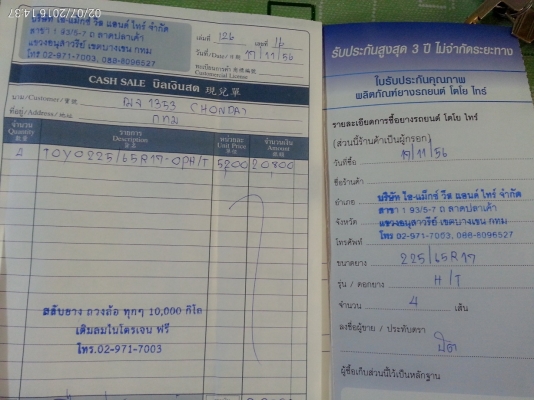 02/07/2016 14:37
บริษัท ไฮ-แม็กซ์ วีล แอนด์ ไทร์ จำกัด
สาขา 1 93/5-7 ถ ลาดปลาเค้า
แขวงอนุสาวรีย์ เขตบางเขน กทม
โทร 02-971-7003, 088-8096527
เล่มที่ 126 เลขที่ 16
วันที่/Date/日期 17/11/56
ทะเบียนการค้า
Commercial License
CASH SALE บิลเงินสด 現兌單
นาม/Customer/寶號 1353 CHONDAY
ที่อยู่/Address/地址 กทม
จำนวน รายการ หน่วยละ จำนวนเงิน
Quantity Description Unit Price Amount
4 TOYO 225/65R17-OPH/T 5200 20800
สลับยาง ถ่วงล้อ ทุกๆ 10,000 กิโล
เติมลมไนโตรเจน ฟรี
โทร.02-971-7003
รับประกันสูงสุด 3 ปี ไม่จำกัดระยะทาง
ใบรับประกันคุณภาพ
ผลิตภัณฑ์ยางรถยนต์ โตโย ไทร์
รายละเอียดการซื้อยางรถยนต์ โตโย ไทร์
(ส่วนนี้ร้านค้าเป็นผู้กรอก)
วันที่ซื้อ 17/11/56
ชื่อร้านค้า
อำเภอ บริษัท ไฮ-แม็กซ์ วีล แอนด์ ไทร์ จำกัด
สาขา 1 93/5-7 ถ ลาดปลาเค้า
จังหวัด แขวงอนุสาวรีย์ เขตบางเขน กทม
โทร 02-971-7003, 088-8096527
โทรศัพท์
ขนาดยาง 225/65R17
รุ่น / ดอกยาง H/T
จำนวน 4 เส้น
ลงชื่อผู้ขาย / ประทับตรา
ผู้ซื้อเก็บส่วนนี้ไว้เป็นหลักฐาน